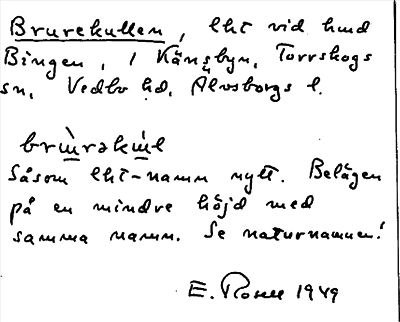 Brurekullen, lht vid hmd
Bingen, i Känsbyn, Torrskogs
sn, Vedbo hd, Älvsborgs l.
brùrəkùl
Såsom lht-namn nytt. Belägen
på en mindre höjd med
samma namn. Se naturnamnen!
E. Rosell 1949